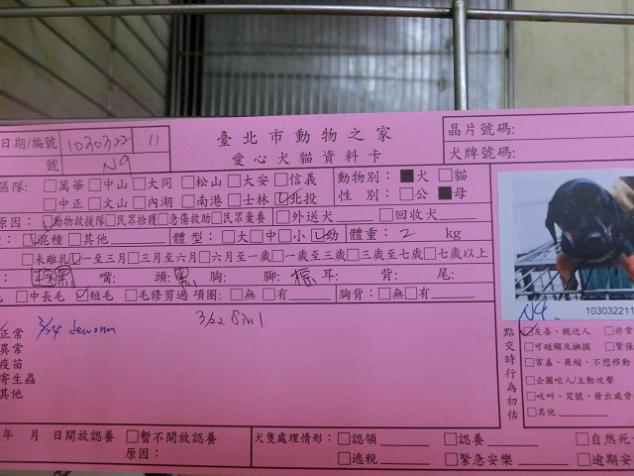 臺北市動物之家
日期/編號 1030322 11
愛心犬貓資料卡
晶片號碼:
犬牌號碼:
號 N9
區隊: □萬華□中山□大同 □松山□大安□信義 動物別: ■犬 □貓
□中正□文山□內湖 □南港□士林☑北投 性 別: □公 ■母
原因: ☑動物救援隊□民眾拾獲□急傷救助□民眾棄養 □外送犬 □回收犬
: ☑混種□其他 體 型: □大□中□小☑幼 體重: 2 kg
□未離乳☑一至三月□三月至六月□六月至一歲 □一歲至三歲□三歲至七歲□七歲以上
: 棕黑 嘴: 頭: 黑 胸: 腳: 棕 耳: 背: 尾:
毛 □中長毛 ☑短毛 □毛修剪過 項圈: □無□有 胸背: □無□有
正常 3/24 deworm 3/22 8in1
異常
疫苗
寄生蟲
其他
N9
10303221
點交時行為初估
☑友善、親近人 □非常
□可碰觸及撫摸 □緊張
□害羞、畏縮、不想移動
□企圖咬人/主動攻擊
□吠叫、哭號、發出威脅
□其他
年 月 日開放認養 □暫不開放認養
原因:
犬隻處理情形: □認領 □認養 □自然死
□逃稅 □緊急安樂 □逾期安